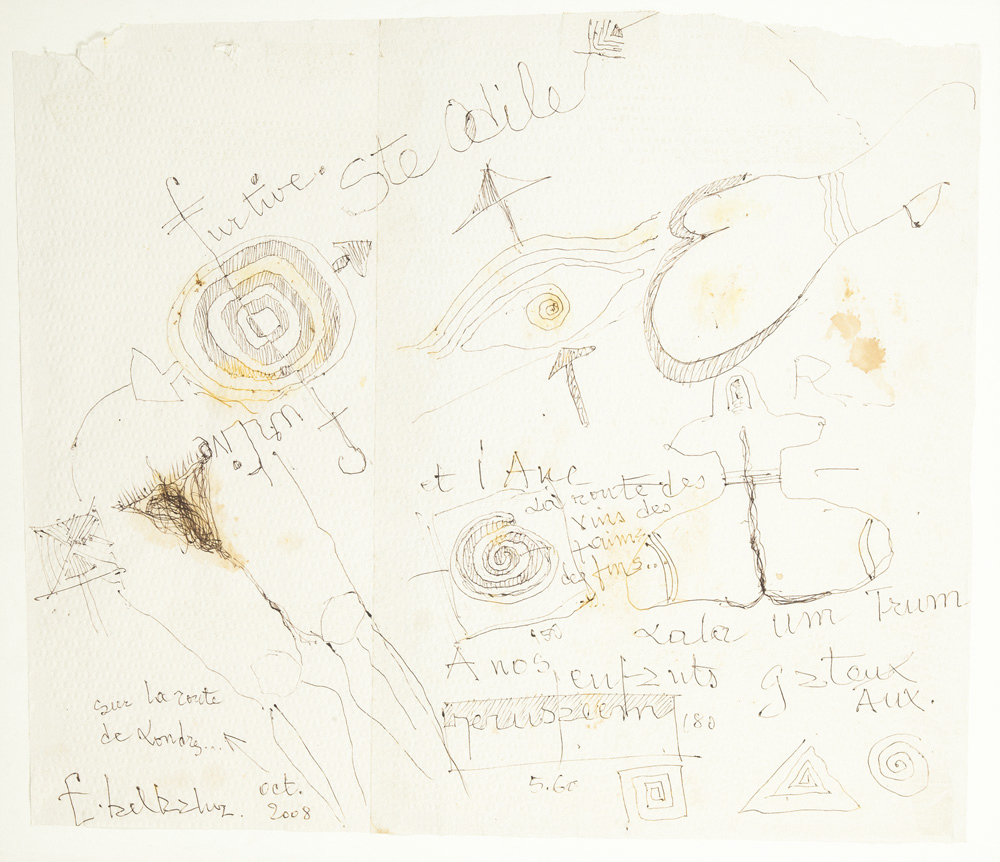 Ste Odile
furtive.
furtive.
R
et l'Anc
La route des
vins des
faims
des fins...
'80
Lala um Trum
A nos enfants gateux
AUX.
180
5.60
sur la route
de Londres...
oct.
2008